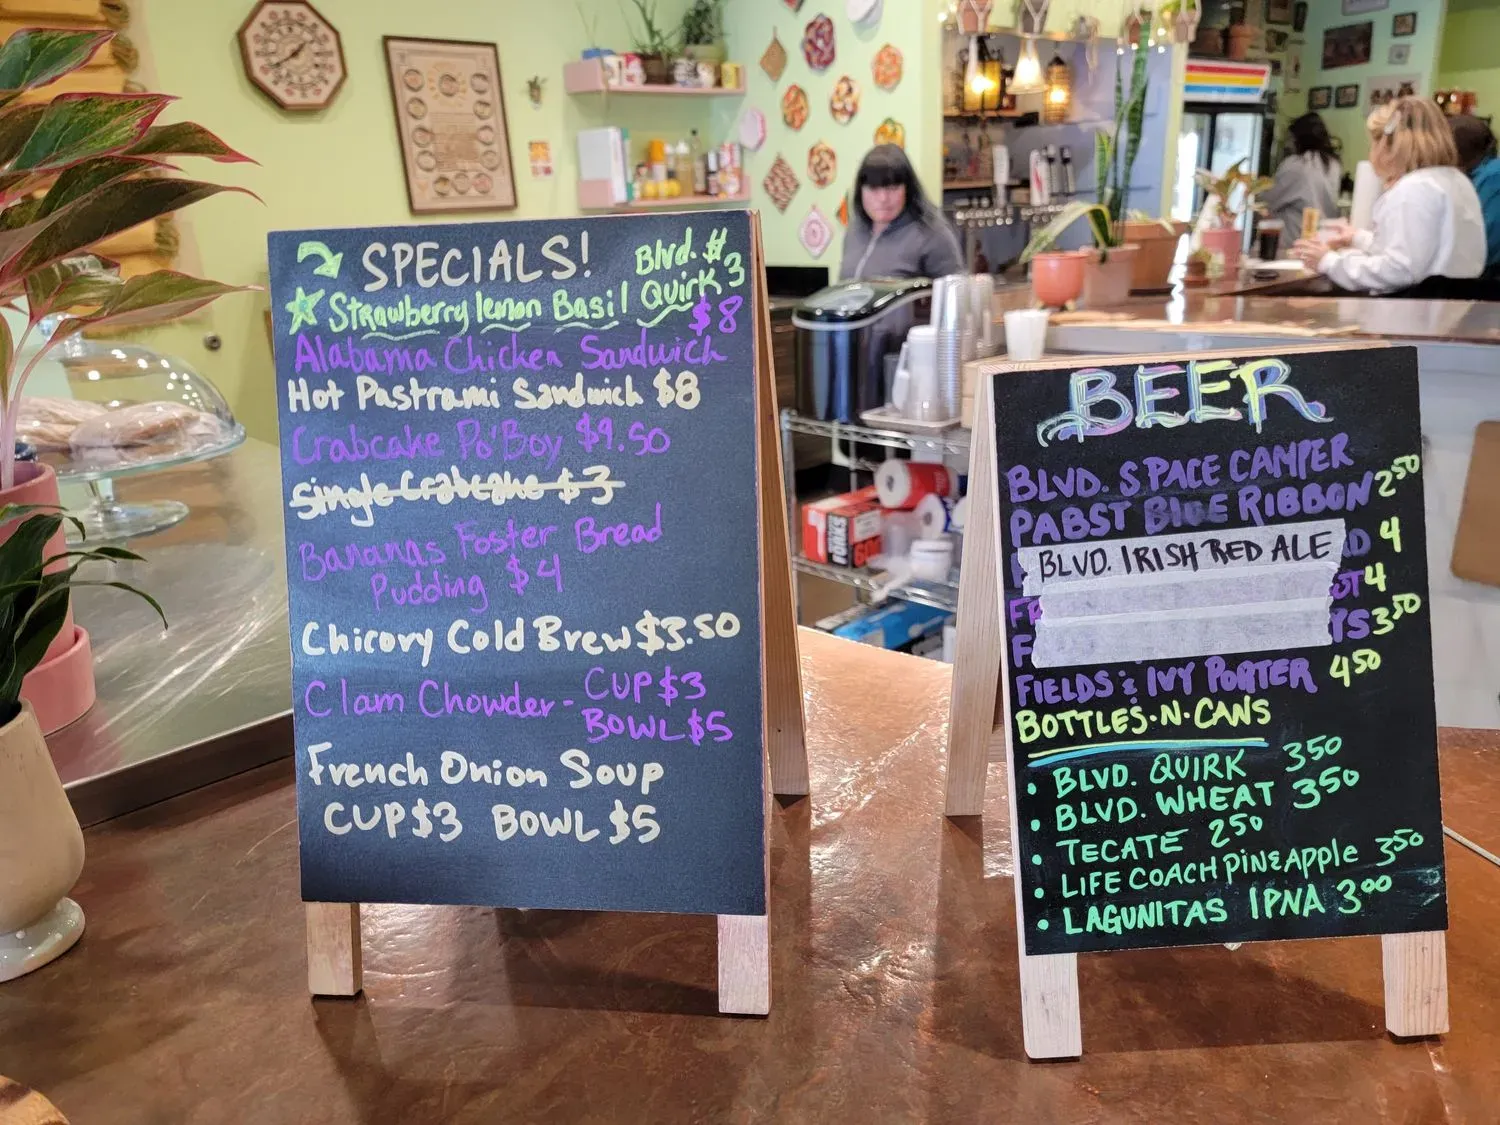 SPECIALS!
Blvd. #
Strawberry lemon Basil Quirk 3
$8
Alabama Chicken Sandwich
Hot Pastrami Sandwich $8
Crabcake Po'Boy $9.50
Single Crabcake $3
Bananas Foster Bread
Pudding $4
Chicory Cold Brew $3.50
Clam Chowder - CUP $3
BOWL $5
French Onion Soup
CUP $3 BOWL $5
BEER
BLVD. SPACE CAMPER
PABST BLUE RIBBON 2.50
BLVD. IRISH RED ALE 4
4
3.50
FIELDS & IVY PORTER 4.50
BOTTLES·N·CANS
• BLVD. QUIRK 3.50
• BLVD. WHEAT 3.50
• TECATE 2.50
• LIFE COACH PINEAPPLE 3.50
• LAGUNITAS IPNA 3.00